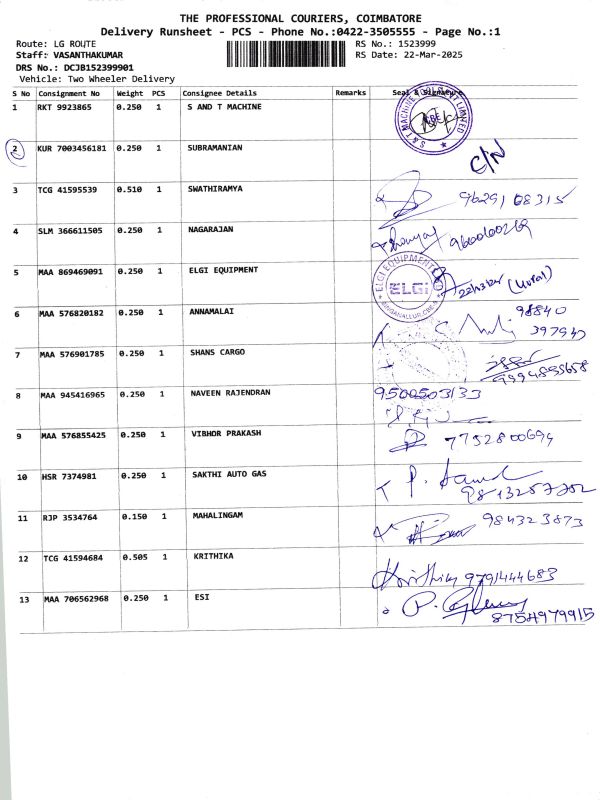 THE PROFESSIONAL COURIERS, COIMBATORE
Delivery Runsheet - PCS - Phone No.:0422-3505555 - Page No.:1
Route: LG ROUTE
RS No.: 1523999
Staff: VASANTHAKUMAR
RS Date: 22-Mar-2025
DRS No.: DCJB152399901
Vehicle: Two Wheeler Delivery
S No Consignment No Weight PCS Consignee Details Remarks Seal & Signature
1 RKT 9923865 0.250 1 S AND T MACHINE
2 KUR 7003456181 0.250 1 SUBRAMANIAN C/N
3 TCG 41595539 0.510 1 SWATHIRAMYA 9629108315
4 SLM 366611505 0.250 1 NAGARAJAN
5 MAA 869469091 0.250 1 ELGI EQUIPMENT ELGi
6 MAA 576820182 0.250 1 ANNAMALAI 98840
397940
7 MAA 576901785 0.250 1 SHANS CARGO 9994895658
8 MAA 945416965 0.250 1 NAVEEN RAJENDRAN 9500503133
9 MAA 576855425 0.250 1 VIBHOR PRAKASH 7752800694
10 HSR 7374981 0.250 1 SAKTHI AUTO GAS
11 RJP 3534764 0.150 1 MAHALINGAM 984323873
12 TCG 41594684 0.505 1 KRITHIKA Krithika 9791444683
13 MAA 706562968 0.250 1 ESI 8754979915